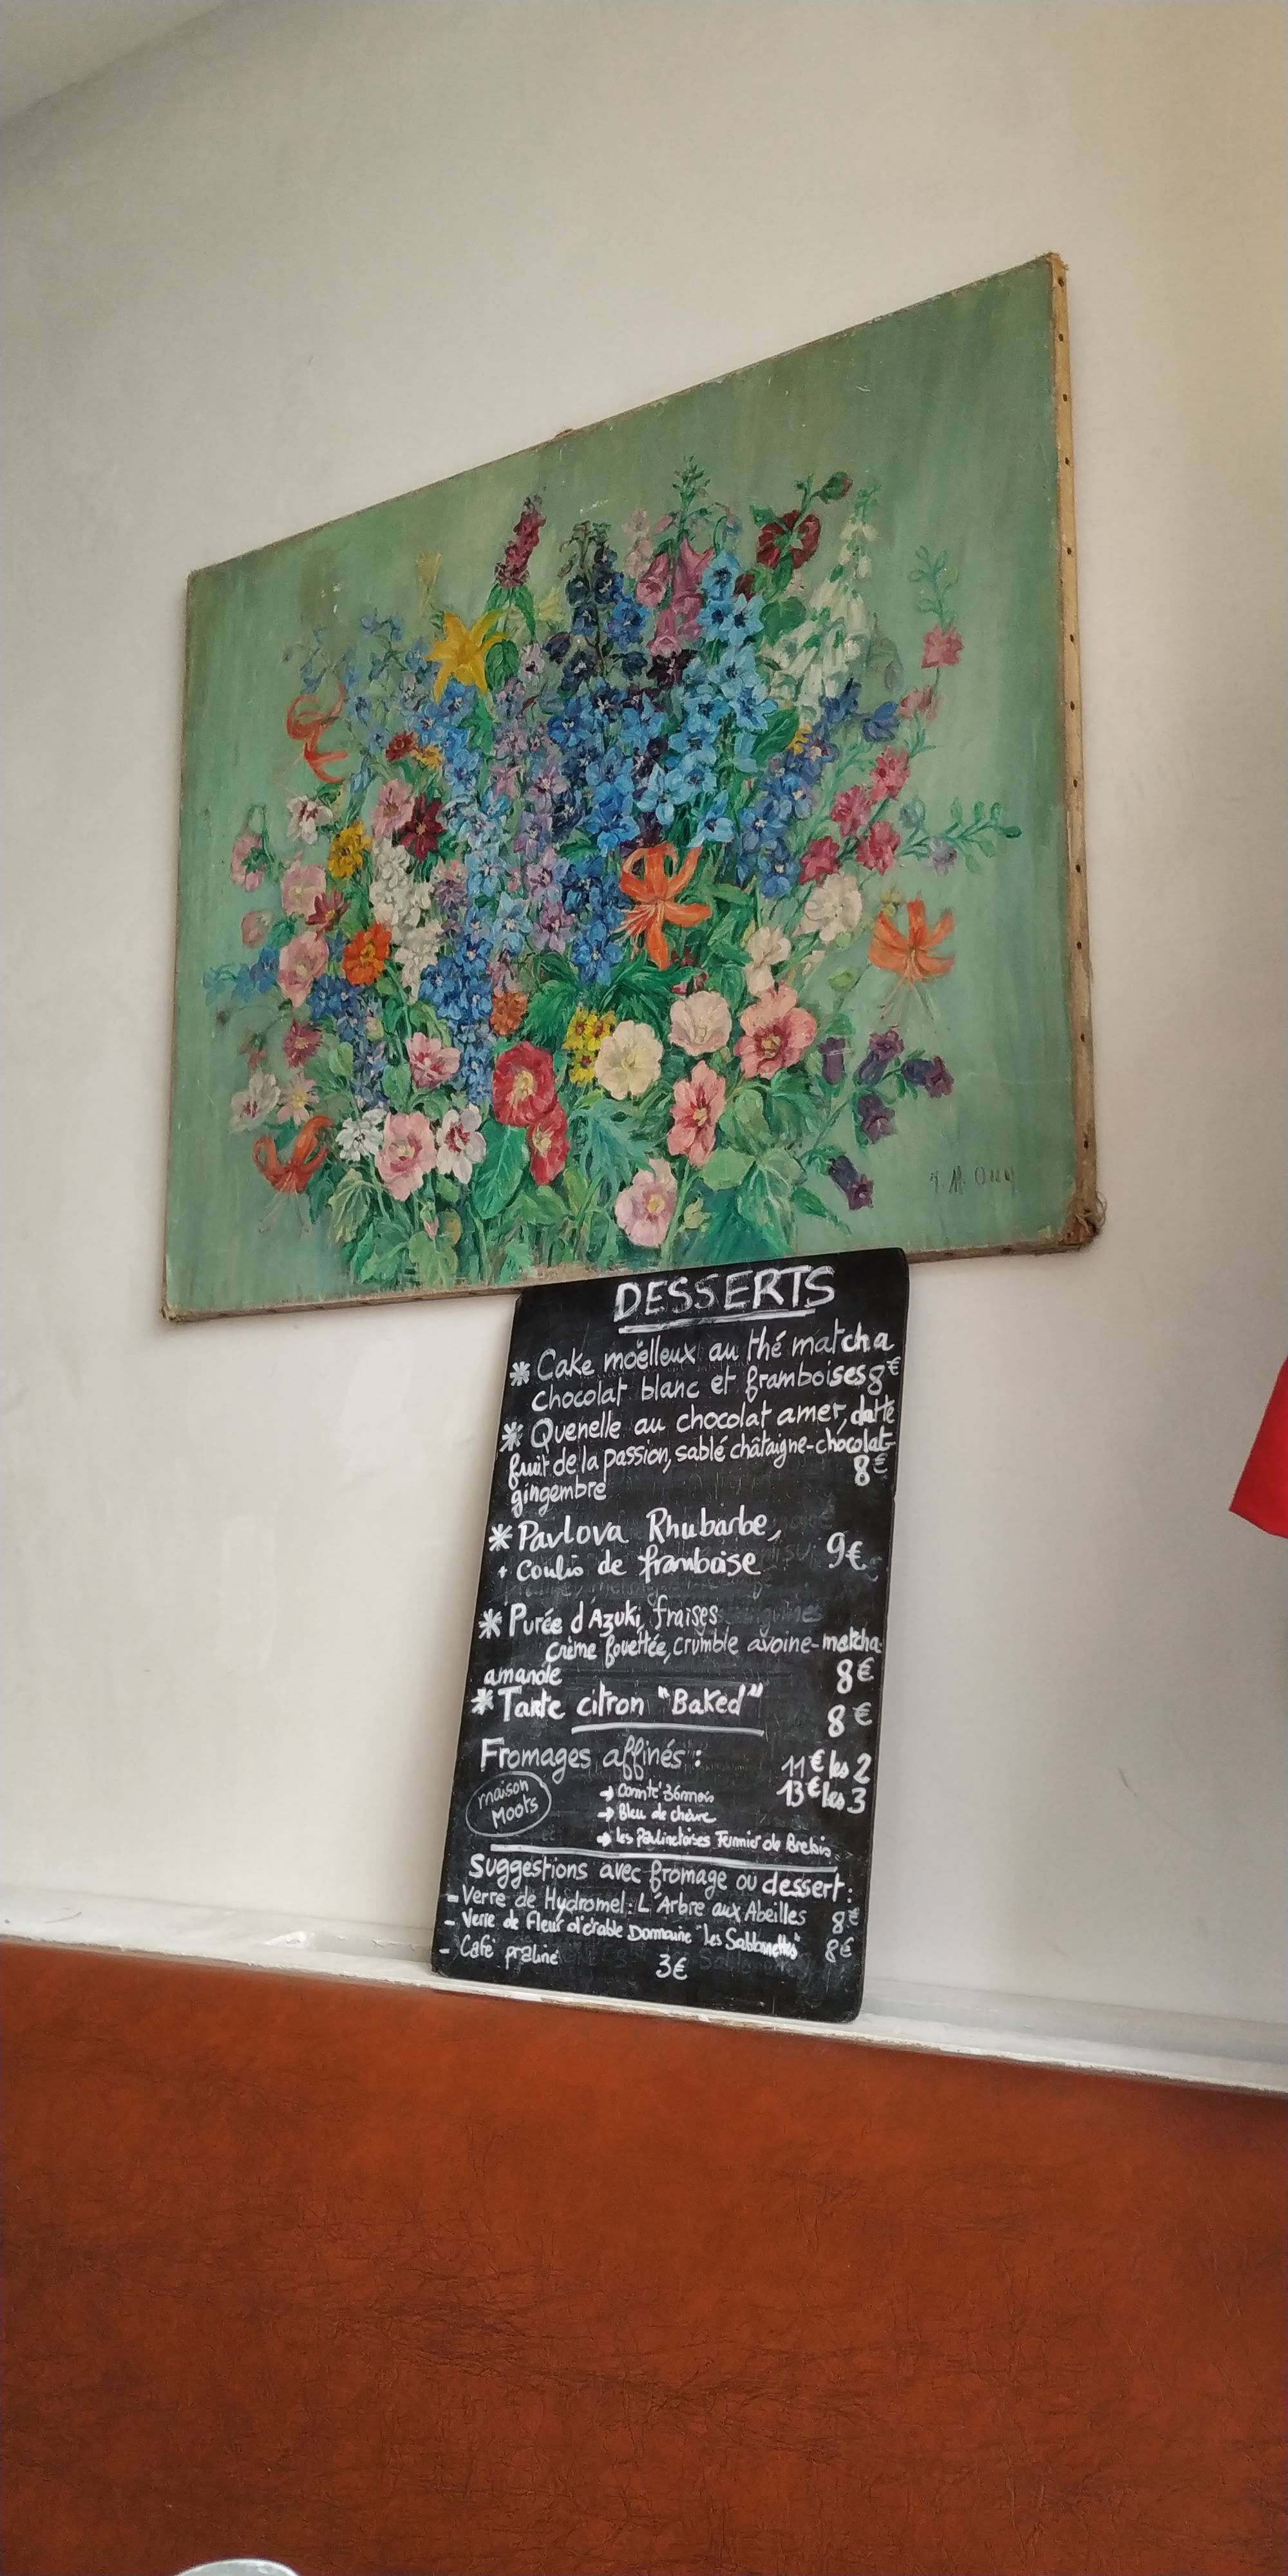 DESSERTS
* Cake moëlleux au thé matcha
chocolat blanc et framboises 8€
* Quenelle au chocolat amer, datte
fruit de la passion, sablé châtaigne-chocolat-
8€
gingembre
* Pavlova Rhubarbe,
+ Coulis de framboise 9€
* Purée d'Azuki, fraises
crème fouettée, crumble avoine-matcha-
amande 8€
* Tarte citron "Baked" 8€
Fromages affinés : 11€ les 2
maison
Moots
→ Comté 36 mois 13€ les 3
→ Bleu de chèvre
→ Les Fermier de Brebis
Suggestions avec fromage ou dessert :
- Verre de Hydromel : L'Arbre aux Abeilles 8€
- Verre de Fleur d'érable Domaine "les Sablonnettes" 8€
- Café praliné 3€